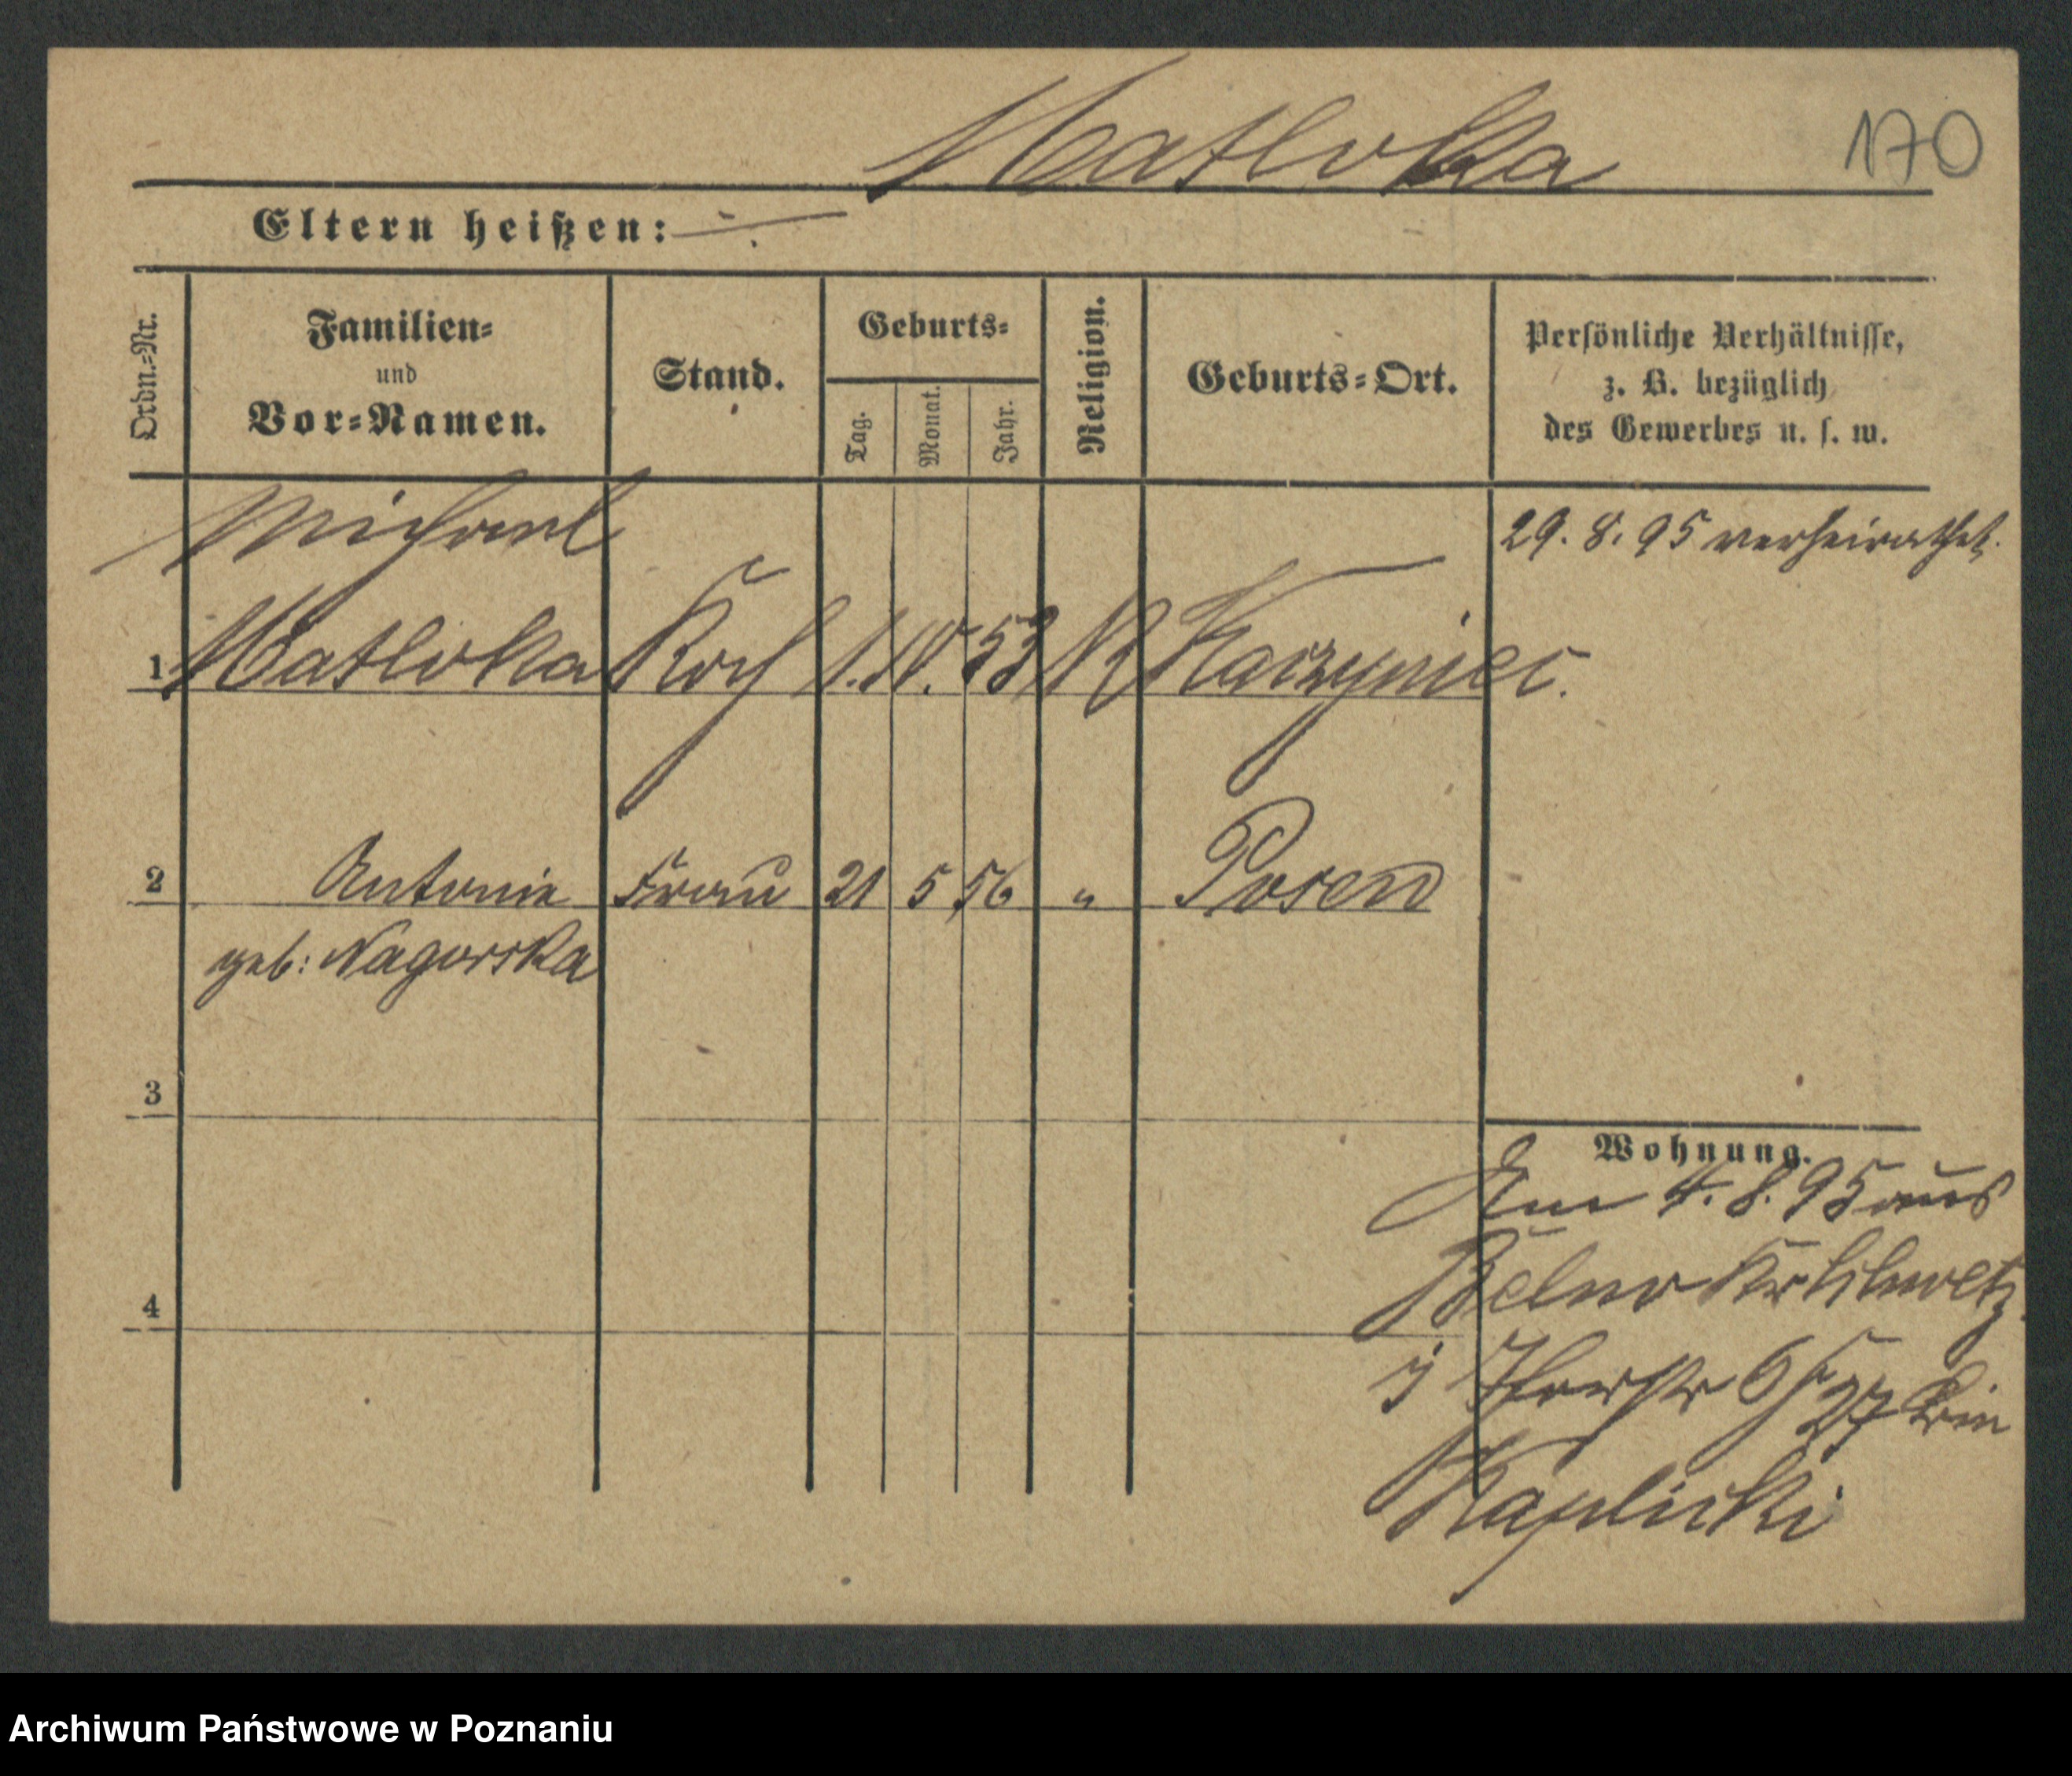 Matloka
170
Eltern heißen: —
Ordn.-Nr.
Familien-
und
Vor-Namen.
Stand.
Geburts-
Tag.
Monat.
Jahr.
Religion.
Geburts-Ort.
Persönliche Verhältnisse,
z. B. bezüglich
des Gewerbes u. s. w.
Michael
29. 8. 95 verheirathet.
1 Matloka Koch 1. IV. 53
2 Antonie Frau 21 5 56 " Posen
geb: Nagorska
3
Wohnung.
Am 4. 8. 95 aus
4
Kaplicki
Archiwum Państwowe w Poznaniu